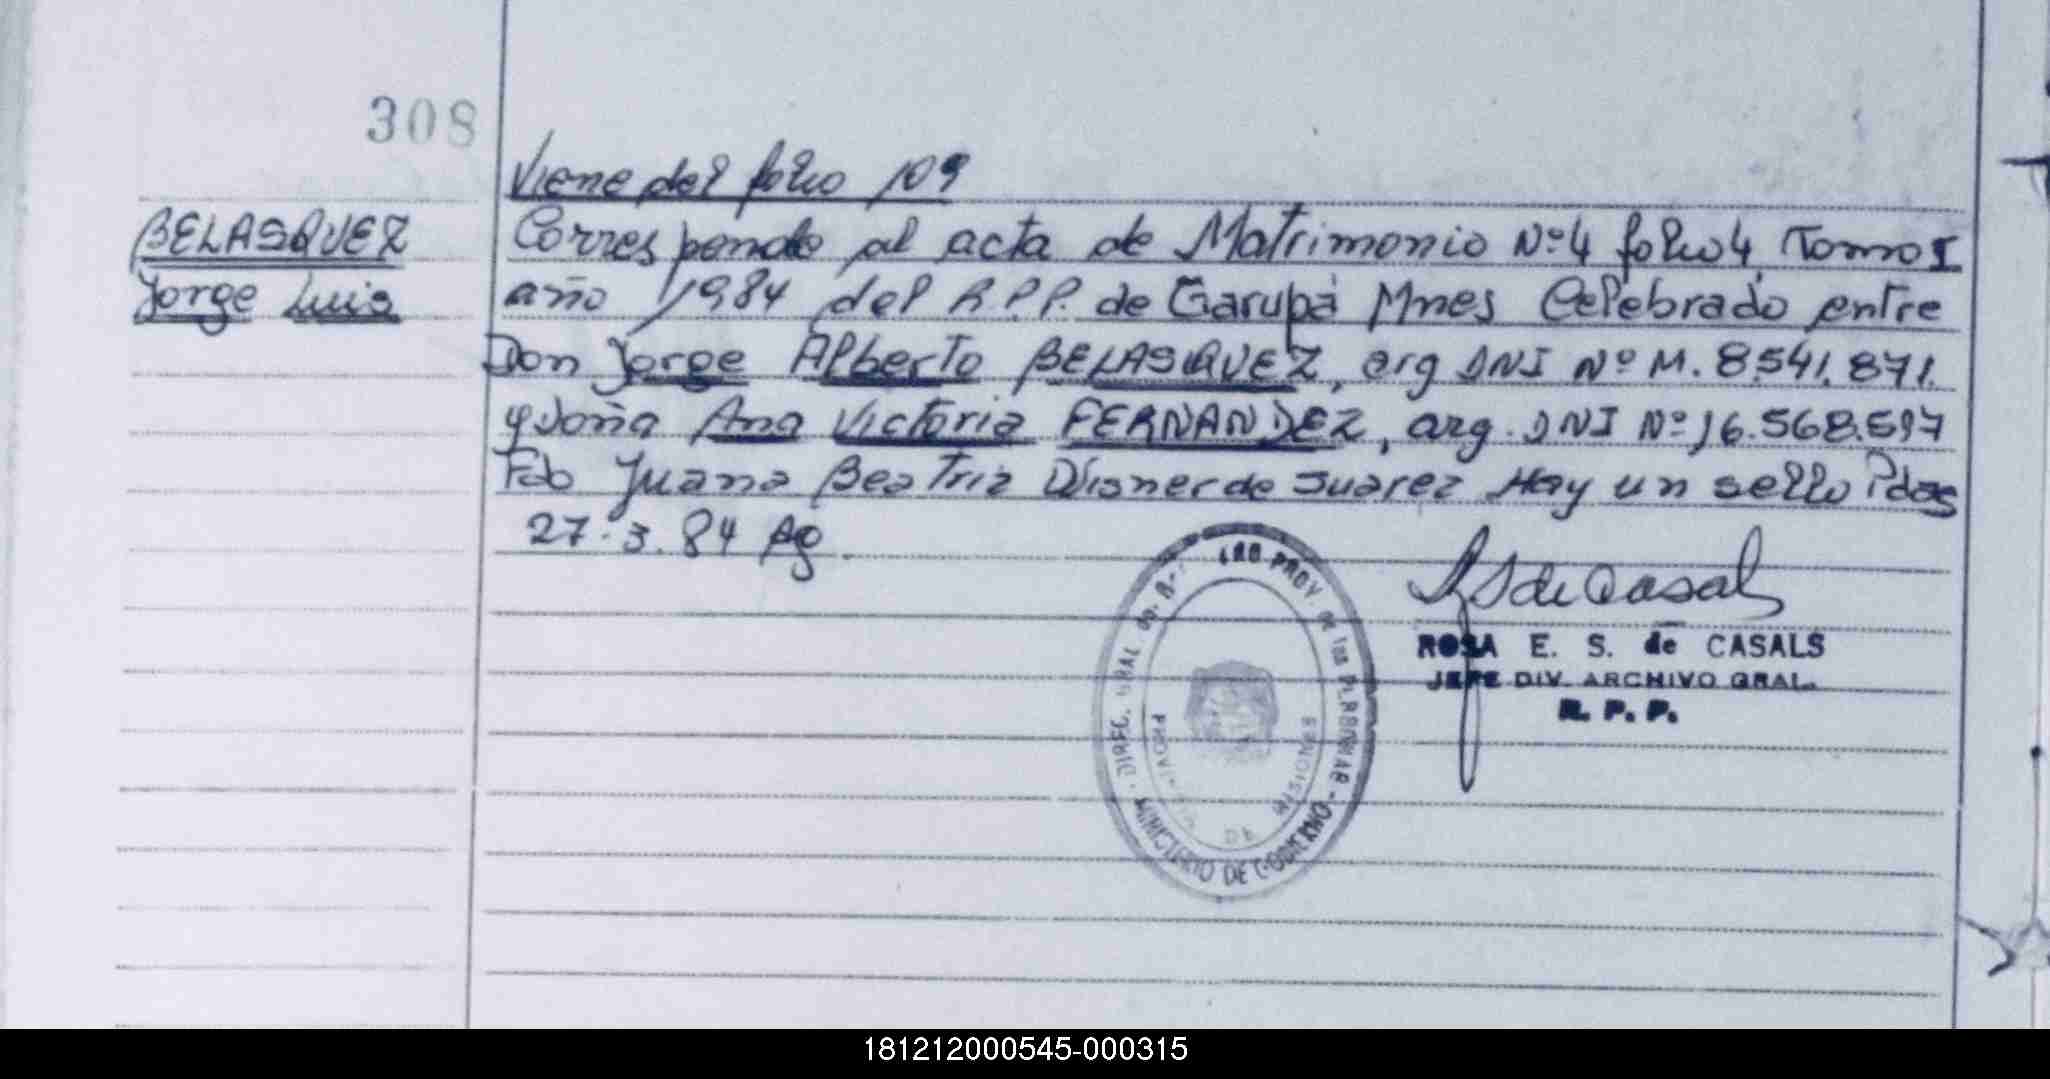 308
Viene del folio 109
BELASQUEZ
Jorge Luis
Corresponde al acta de Matrimonio Nº 4 folio 4 Tomo I
año 1984 del R.P.P. de Garupá Mnes Celebrado entre
Don Jorge Alberto BELASQUEZ, arg DNI Nº M. 8.541.871.
y Doña Ana Victoria FERNANDEZ, arg. DNI Nº 16.568.597
Fdo Juana Beatriz de Suarez Hay un sello Pdas
27.3.84 Ag
ROSA E. S. de CASALS
JEFE DIV. ARCHIVO GRAL.
R. P. P.
DIREC. GRAL PROV. de las
MINISTERIO DE GOBIERNO
DE MISIONES
181212000545-000315